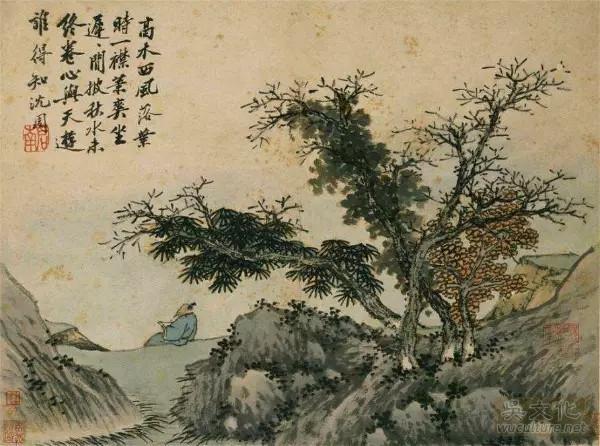 高木西風落葉
時一襟蕭爽坐
遲〻閒披秋水未
終卷心與天遊
誰得知沈周
吳文化
wuculture.net